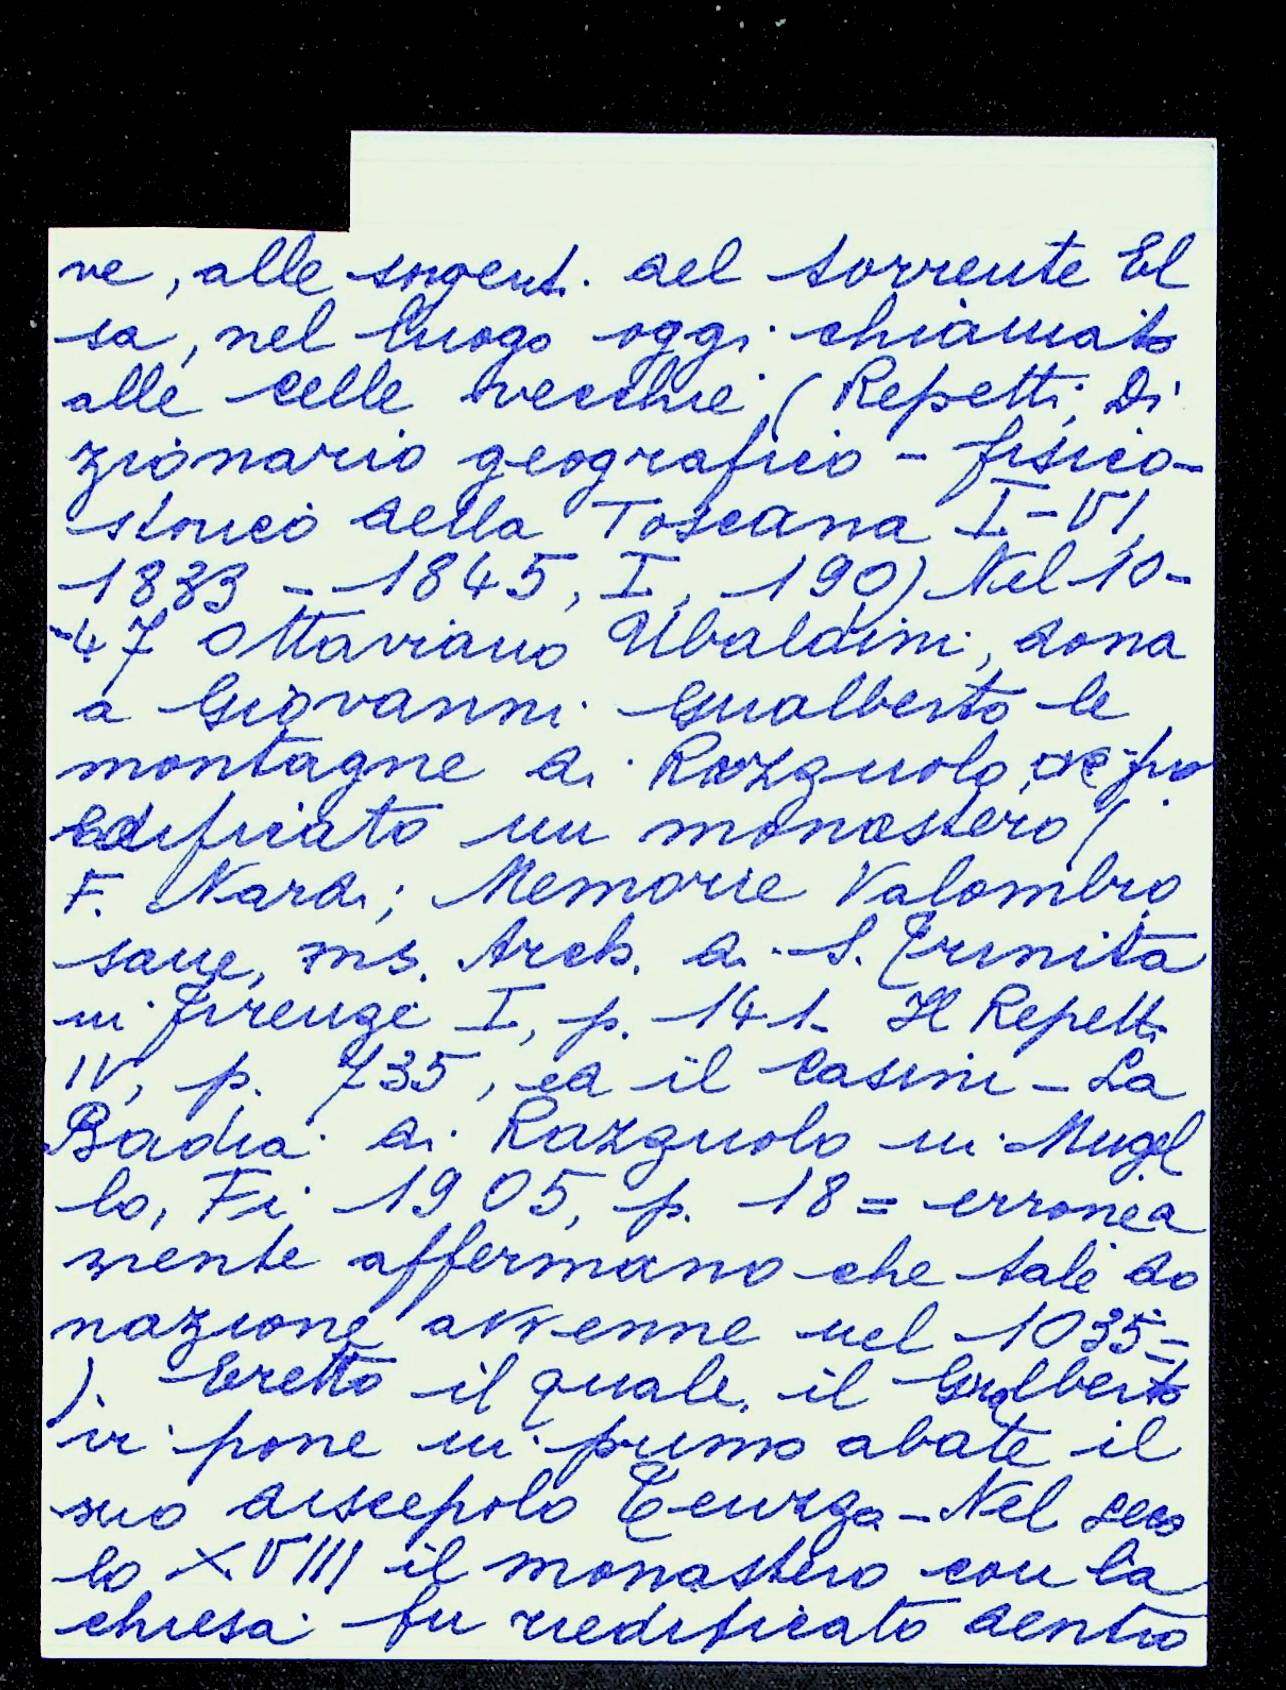 ne, alle sorgenti del torrente El
sa, nel luogo oggi chiamato
alle celle vecchie (Repetti, Di
zionario geografico - fisico-
storico della Toscana I-VI,
1833 - 1845, I, 190) Nel 10-
-47 Ottaviano Ubaldini, dona
a Giovanni Gualberto le
montagne di Razzuolo,
edificato un monastero (
F. Nardi; Memorie Valombro
sane, ms. Arch. di S. Trinita
in Firenze I, p. 141. Il Repetti
IV, p. 735, ed il Casini - La
Badia di Razzuolo in Mugel
lo, Fi, 1905, p. 18 = erronea
mente affermano che tale do
nazione avvenne nel 1035=
). Eretto il quale, il Gualberto
vi pone in primo abate il
suo discepolo Teuzo - Nel seco
lo XVIII il monastero con la
chiesa fu riedificato dentro